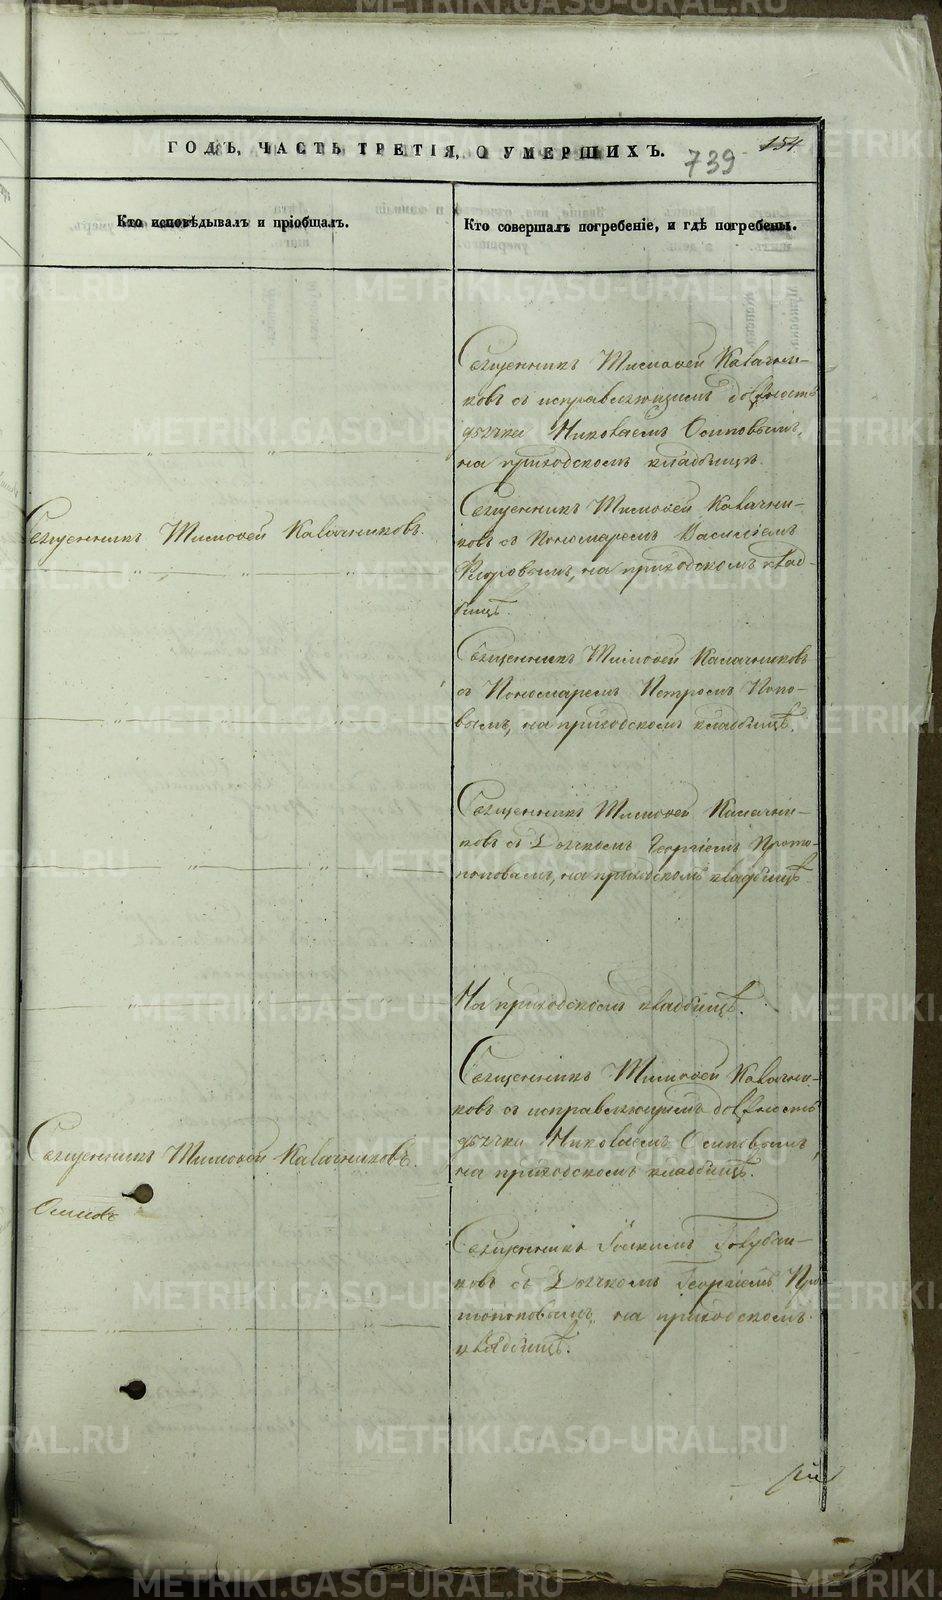 ГОДЪ, ЧАСТЬ ТРЕТІЯ, О УМЕРШИХЪ.
739
154
Кто исповѣдывалъ и пріобщалъ.
Кто совершалъ погребеніе, и гдѣ погребены.
Священникъ Тимофей Калачни-
ковъ съ исправляющимъ должность
дьячка Николаемъ Осиповымъ,
на приходскомъ кладбищѣ.
Священникъ Тимофей Калачниковъ.
Священникъ Тимофей Калачни-
ковъ съ Пономаремъ Василіемъ
на приходскомъ клад-
бищѣ.
Священникъ Тимофей Калачниковъ
съ Пономаремъ Петромъ Попо-
вымъ, на приходскомъ кладбищѣ.
Священникъ Тимофей Калачни-
ковъ съ Дьячкомъ Георгіемъ Прото-
поповымъ, на приходскомъ кладбищѣ.
На приходскомъ кладбищѣ.
Священникъ Тимофей Калачни-
ковъ съ исправляющимъ должность
дьячка Николаемъ Осиповымъ,
на приходскомъ кладбищѣ.
Священникъ Тимофей Калачниковъ.
Священникъ Іоакимъ Голубчи-
ковъ съ Дьячкомъ Георгіемъ Про-
топоповымъ, на приходскомъ
кладбищѣ.
METRIKI.GASO-URAL.RU